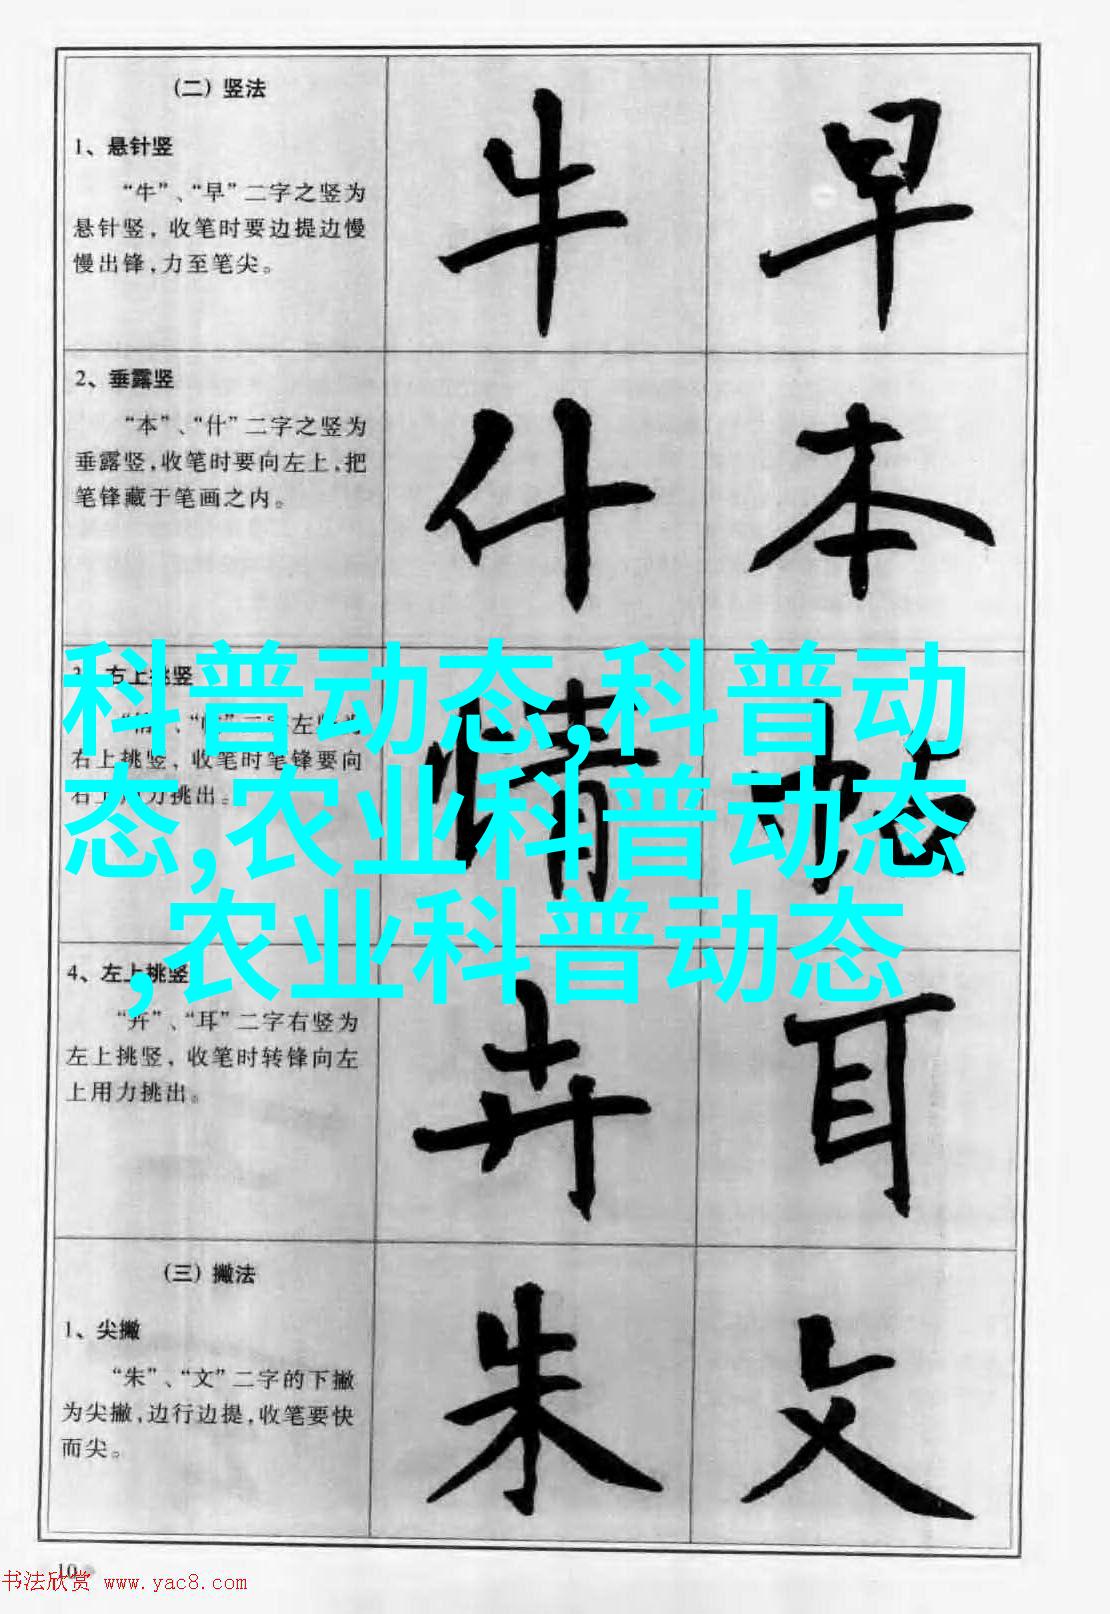 （二）竖法
1、悬针竖
“牛”、“早”二字之竖为
悬针竖，收笔时要边提边慢
慢出锋，力至笔尖。
牛 早
2、垂露竖
“本”、“什”二字之竖为
垂露竖，收笔时要向左上，把
笔锋藏于笔画之内。
什 本
右上挑竖
右上挑竖，收笔时笔锋要向
挑出。
情
科普动态,科普动
态,农业科普动态
,农业科普动态
4、左上挑竖
“卉”、“耳”二字右竖为
左上挑竖，收笔时转锋向左
上用力挑出。
卉 耳
（三）撇法
1、尖撇
“朱”、“文”二字的下撇
为尖撇，边行边提，收笔要快
而尖。
朱 文
10
书法欣赏 www.yac8.com